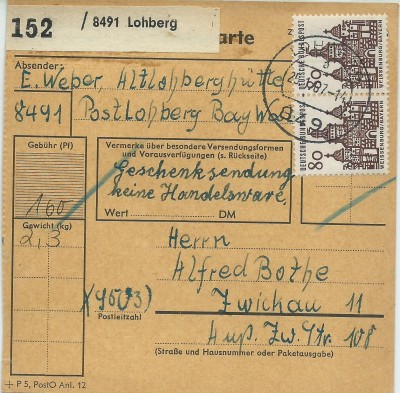 152
/ 8491 Lohberg
arte
Absender:
E. Weber, Altlohberghütte
8491 Post Lohberg Bay Wa
Gebühr (Pf)
Vermerke über besondere Versendungsformen
und Vorausverfügungen (s. Rückseite)
Geschenksendung
keine Handelsware,
Wert DM
160
Gewicht (kg)
2,3
Herrn
Alfred Bothe
X(9503) Zwickau 11
Postleitzahl
Auß. Zw. Str. 108
(Straße und Hausnummer oder Paketausgabe)
+ P 5, PostO Anl. 12
DEUTSCHE BUNDESPOST
80
WEISSENBURG/BAYERN
DEUTSCHE BUNDESPOST
80
WEISSENBURG/BAYERN